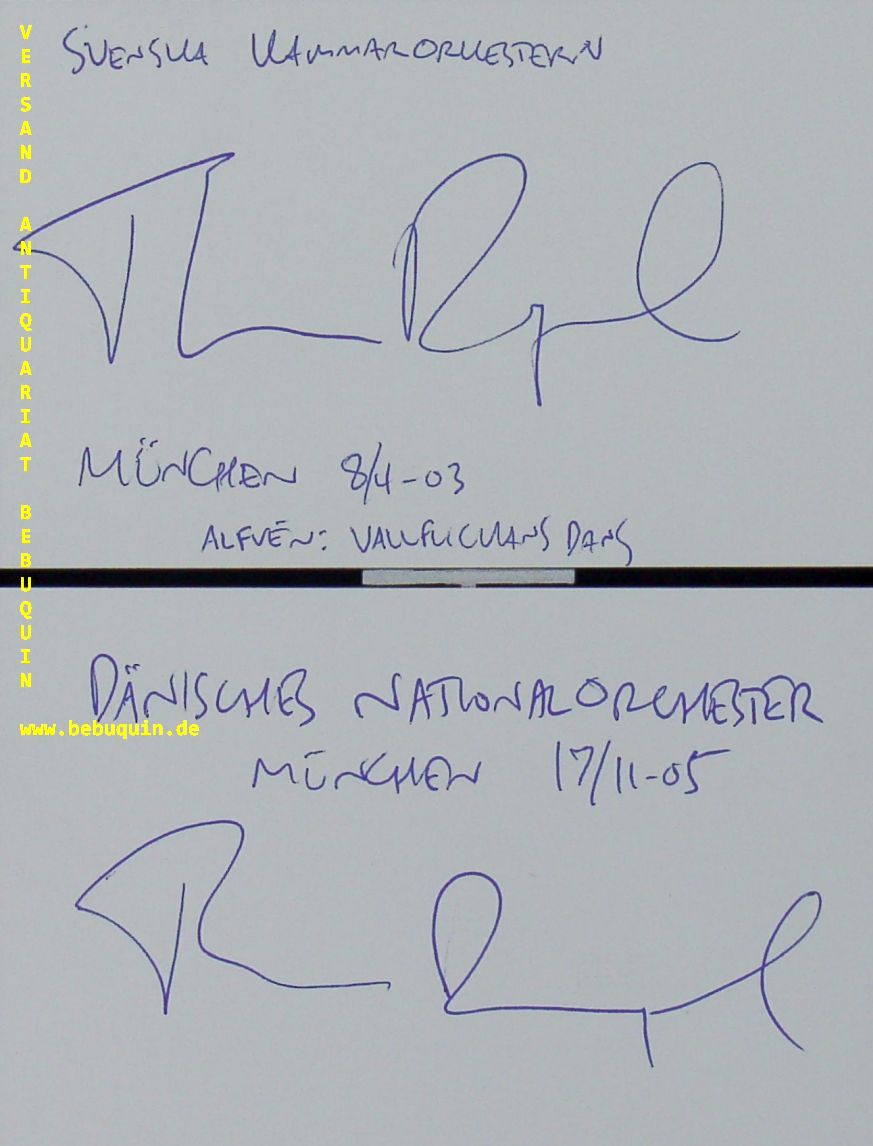 SVENSKA KAMMARORKESTERN
MÜNCHEN 8/4-03
ALFVÉN: VALLFLICKANS DANS
DÄNISCHES NATIONALORCHESTER
MÜNCHEN 17/11-05
VERSAND ANTIQUARIAT BEBUQUIN
www.bebuquin.de